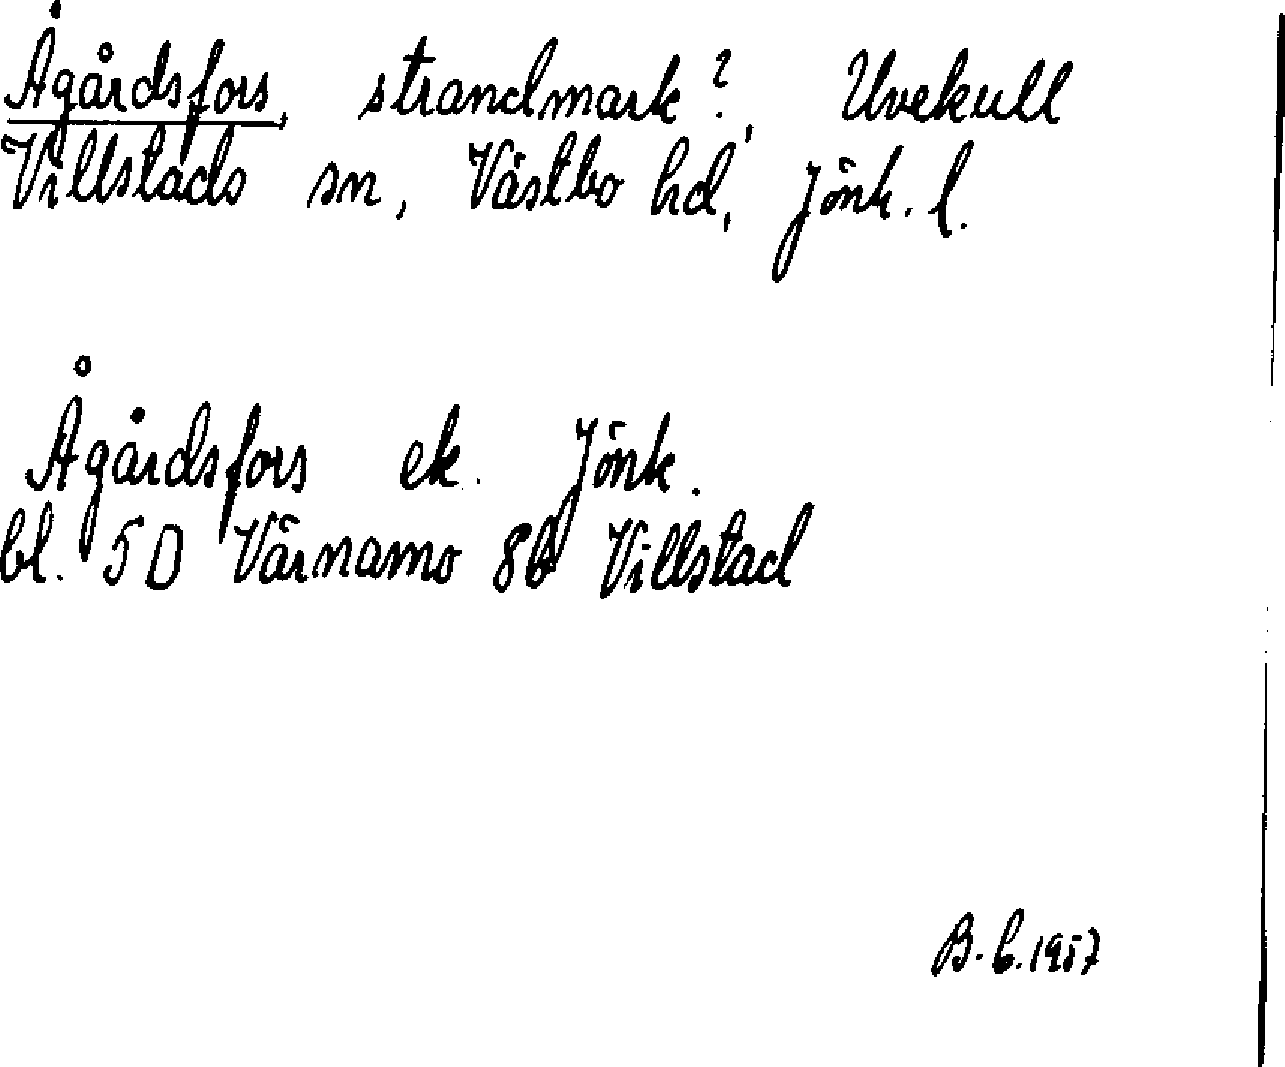 Ågårdsfors, strandmark?, Uvekull
Villstads sn, Västbo hd, Jönk. l.
Ågårdsfors ek. Jönk.
bl. 5D Värnamo 8b Villstad
B. L. 1957